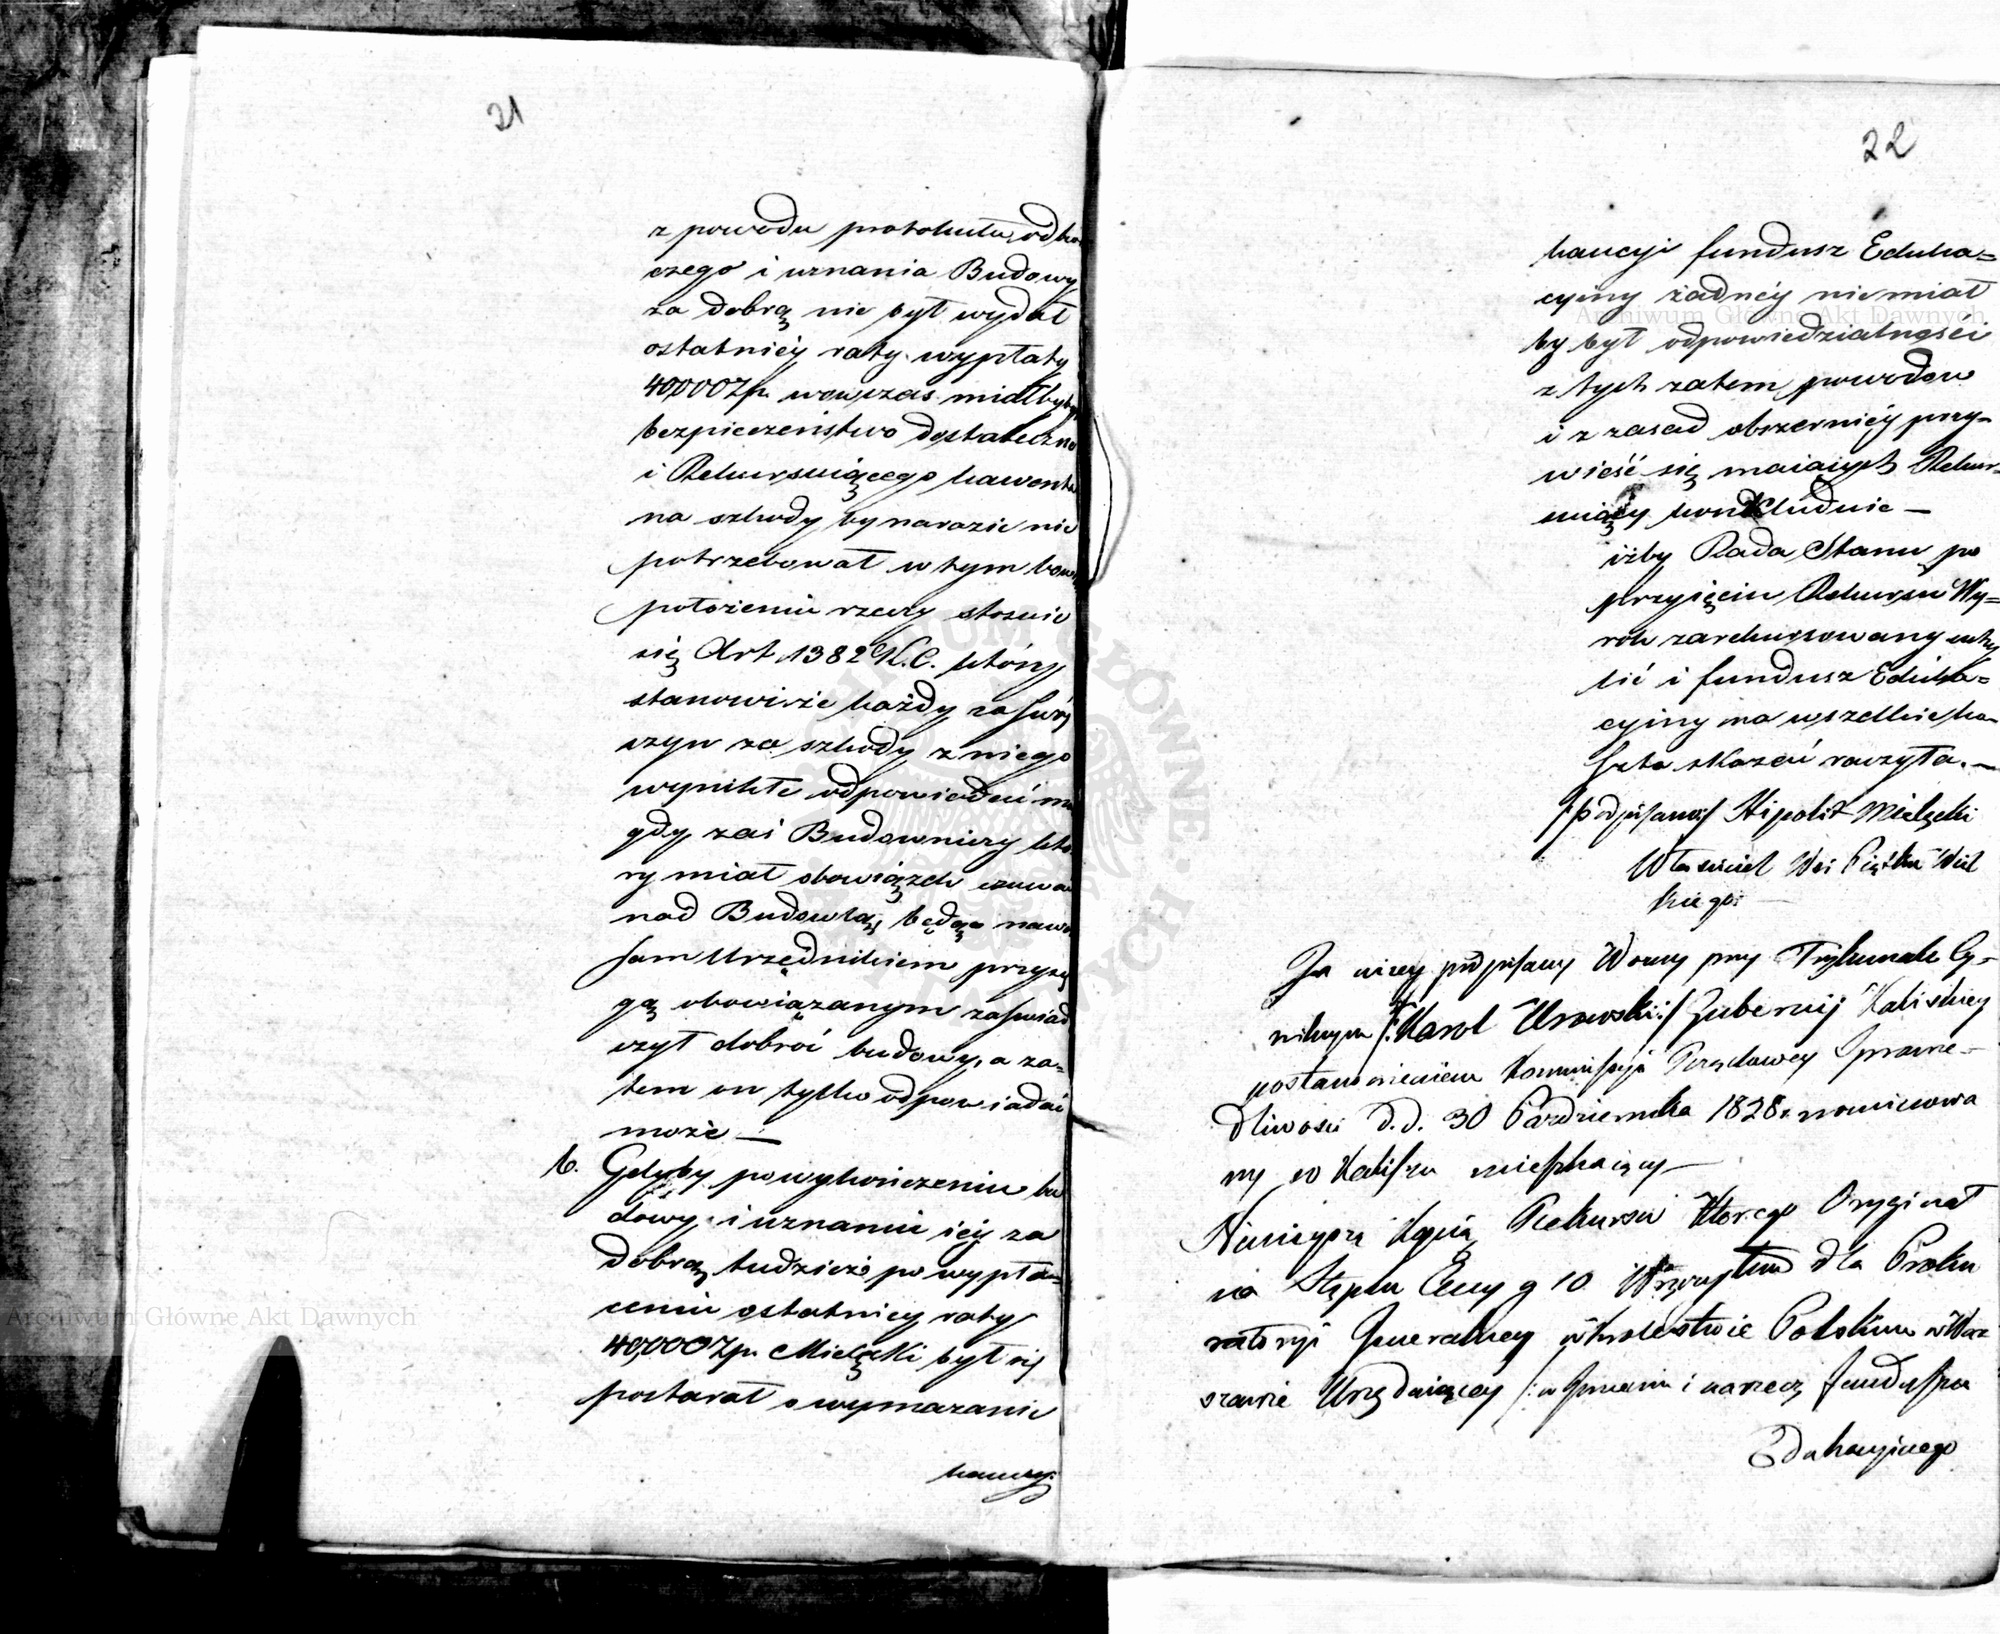 21
z powodu protokułu odbio
czego i uznania Budowy
za dobrą nie był wydał
ostatniéy raty wypłaty
40,000 Zp. wówczas miałby
bezpieczeństwo dostateczne
i Rekursuiącego
na szkody by narazić nie
potrzebował w tym bow
położeniu rzeczy stosuie
się Art. 1382 K.C. który
stanowi że każdy za swóy
czyn za szkody z niego
wynikłe odpowiedać
gdy zaś Budowniczy któ
ry miał obowiązek czuwa
nad Budowlą, będąc nawe
sam Urzędnikiem przysię
gą obowiązanym zaświad
czył dobroć budowy, a za=
tem on tylko odpowiadać
może —
b. Gdyby po wykończeniu bu
dowy i uznaniu iéy za
dobrą, tudzież po wypła=
ceniu ostatniey raty
40,000 Zp. Mielęcki był się
postarał o wymazanie
kaucyi
22
kaucyi fundusz Eduka=
cyiny żadnéy nie miał
by był odpowiedzialności
z tych zatem powodów
i z zasad obszerniéy przy=
wieść się maiących Rekur=
suiący konkluduie —
iżby Rada Stanu po
przyięciu Rekursu Wy=
rok zarekursowany uchy
lić i fundusz Eduka=
cyiny na wszelkie ko=
szta skazać raczyła. —
/podpisano/ Hipolit Mielęcki
Właściciel Wsi Piątku Wiel
kiego
Ja niżey podpisany Woźny przy Trybunale Cy=
wilnym /: Karol Urowski :/ Gubernij Kaliskiey
postanowieniem Kommissyi Rządowey Sprawie=
dliwości d.d. 30 Października 1828 r. nominowa
ny w Kaliszu mieszkaiący —
Ninieyszą Kopią Rekursu którego Oryginał
na Stęplu Ceny g 10 dla Proku
ratoryi Generalney w Krolestwie Polskim w War
szawie Urzęduiącey /: w Imieniu i na rzecz funduszu
Edukacyinego
Archiwum Główne Akt Dawnych
Archiwum Główne Akt Dawnych